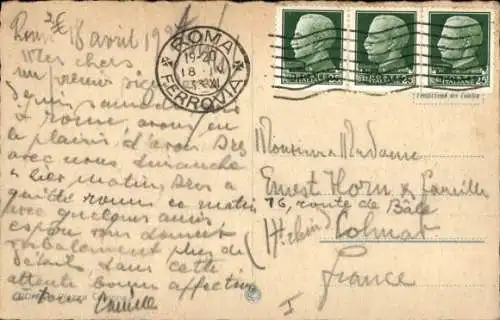 2€
Rome 18 avril 19
Mes chers
un
depuis samedi
à Rome, avons eu
le plaisir d'avoir Dres
avec nous dimanche
& hier matin, Dres a
quitté Rome ce matin
avec quelques amis
vous donner
verbalement plus de
détails, dans cette
attente bonnes affections
à tous Camille
ROMA
19-20
18
FERROVIA
POSTE ITALIANE 25
POSTE ITALIANE 25
POSTE ITALIANE 25
Monsieur & Madame
Ernest Horn & famille
76, route de Bâle
(Ht Rhin) Colmar
France
I